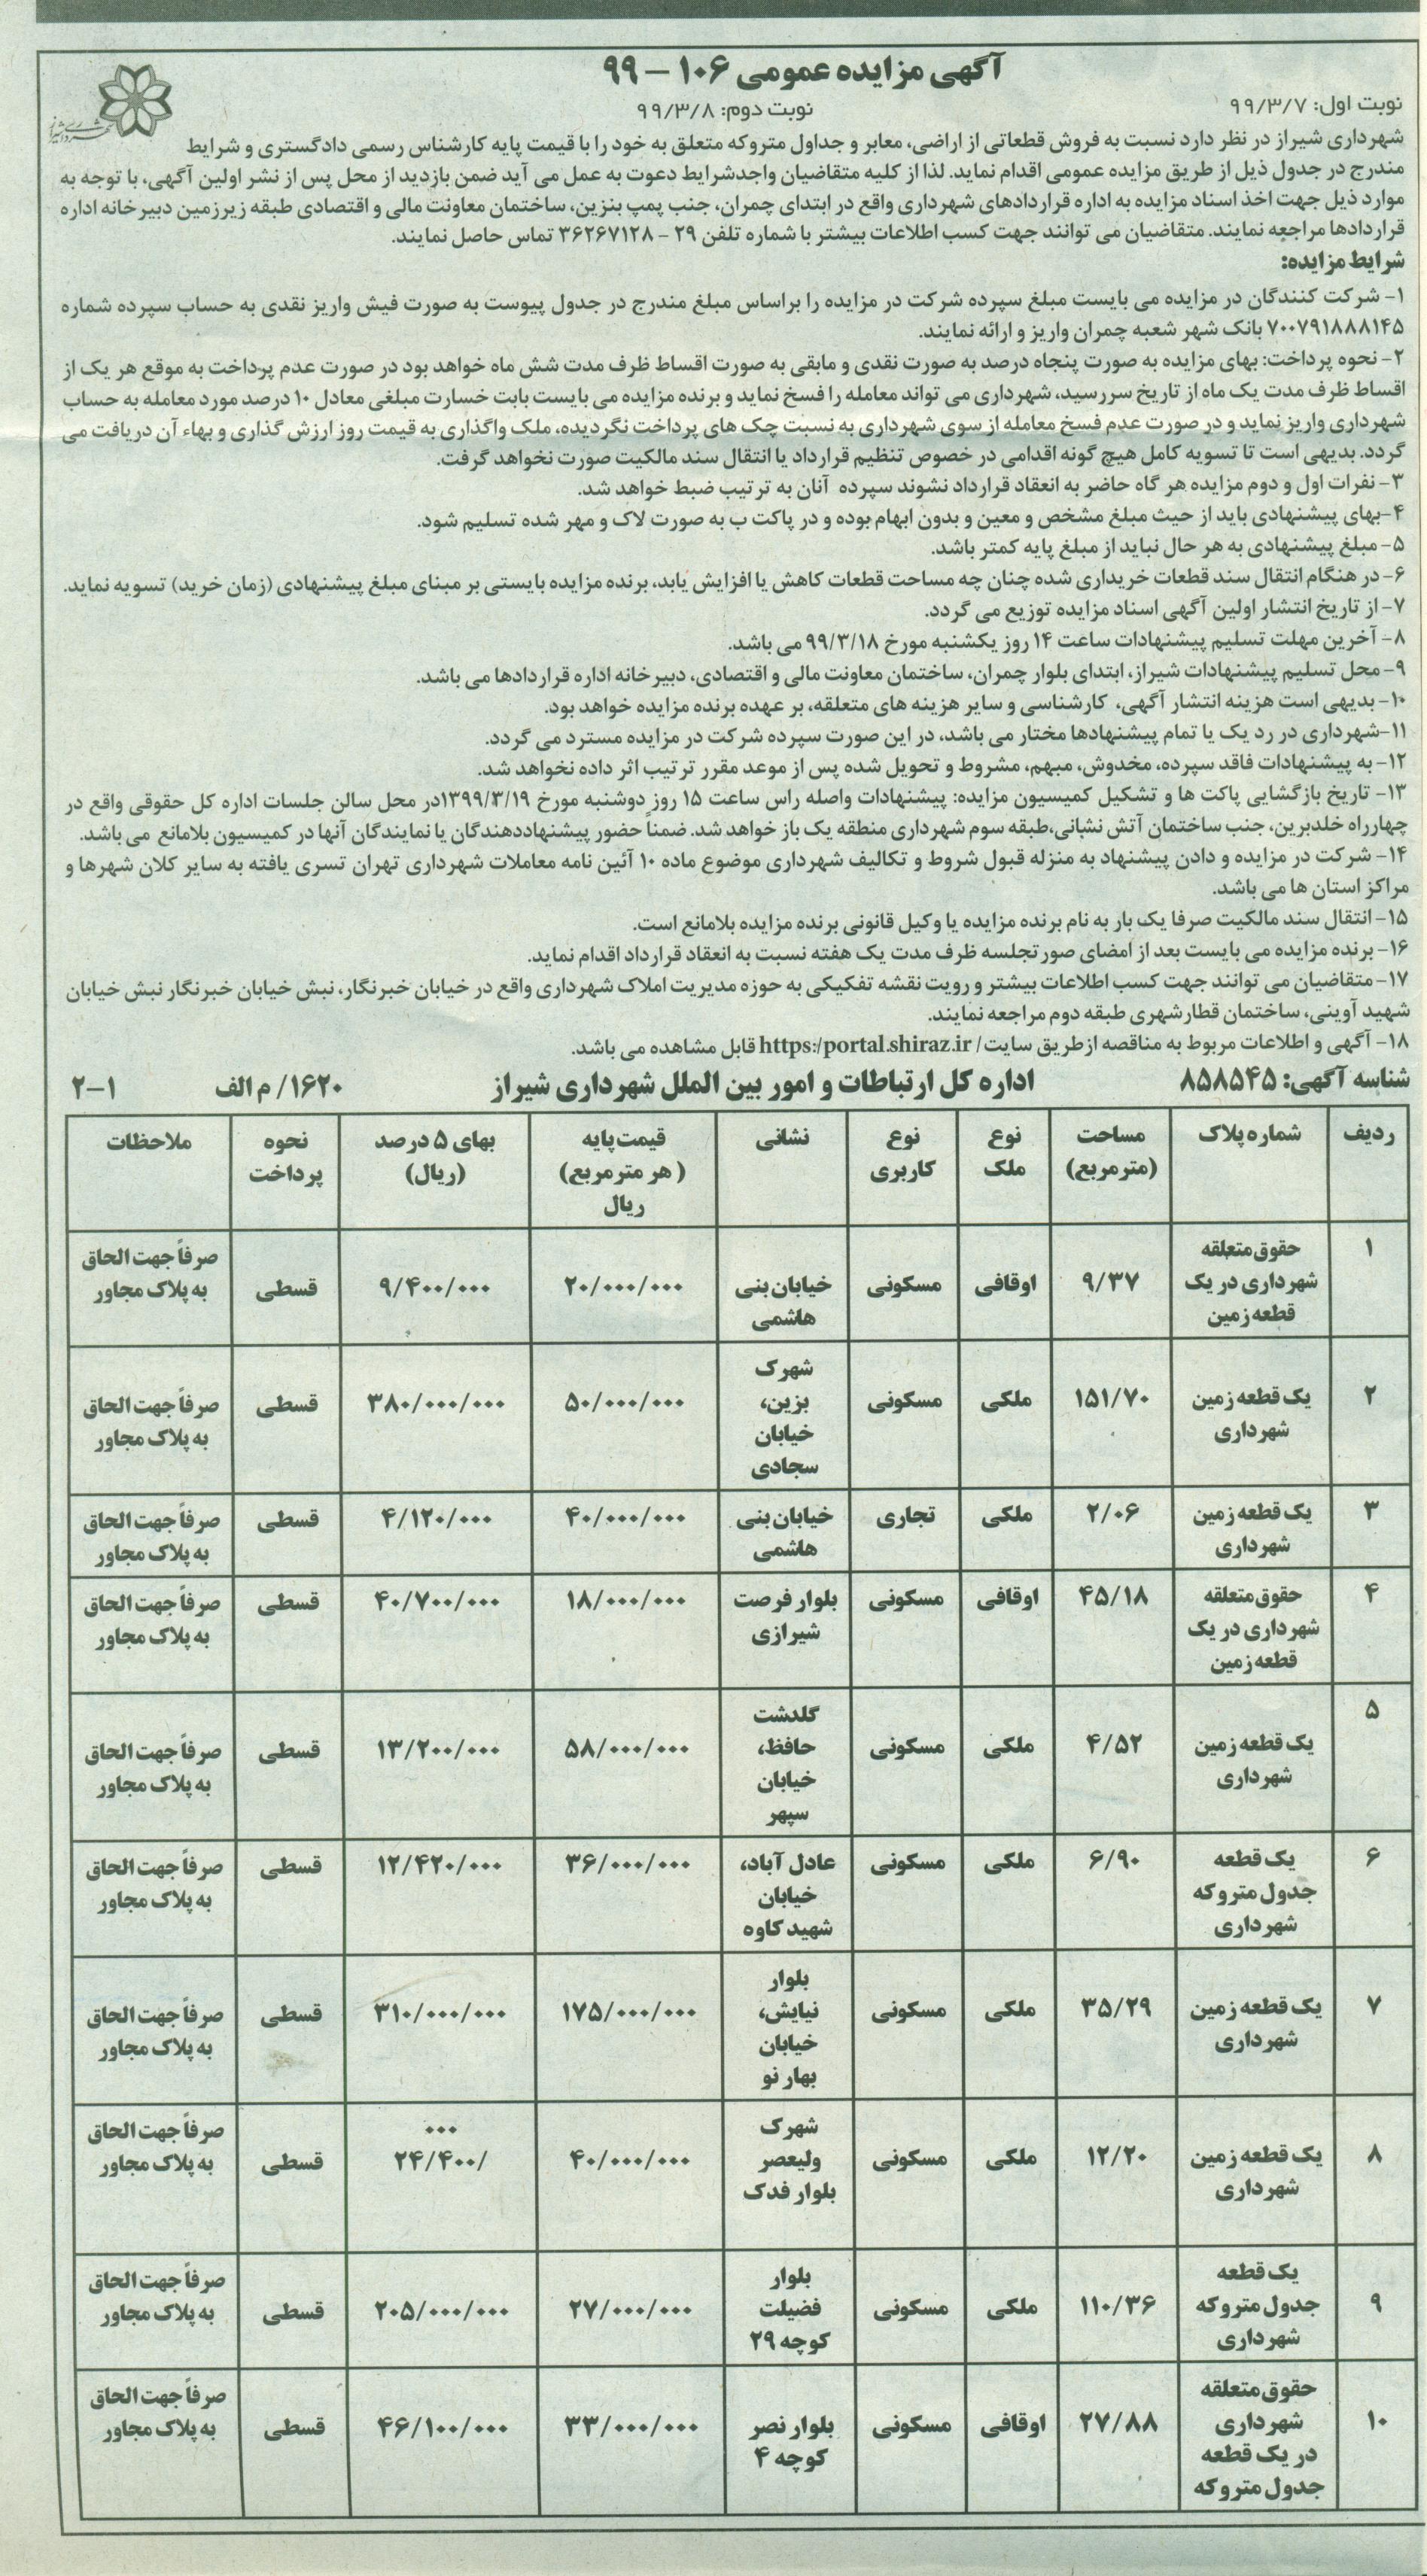 آگهی مزایده عمومی ۱۰۶ – ۹۹
نوبت اول: ۹۹/۳/۷
نوبت دوم: ۹۹/۳/۸
شهرداری شیراز در نظر دارد نسبت به فروش قطعاتی از اراضی، معابر و جداول متروکه متعلق به خود را با قیمت پایه کارشناس رسمی دادگستری و شرایط
مندرج در جدول ذیل از طریق مزایده عمومی اقدام نماید. لذا از کلیه متقاضیان واجدشرایط دعوت به عمل می آید ضمن بازدید از محل پس از نشر اولین آگهی، با توجه به
موارد ذیل جهت اخذ اسناد مزایده به اداره قراردادهای شهرداری واقع در ابتدای چمران، جنب پمپ بنزین، ساختمان معاونت مالی و اقتصادی طبقه زیرزمین دبیرخانه اداره
قراردادها مراجعه نمایند. متقاضیان می توانند جهت کسب اطلاعات بیشتر با شماره تلفن ۲۹ – ۳۶۲۶۷۱۲۸ تماس حاصل نمایند.
شرایط مزایده:
۱- شرکت کنندگان در مزایده می بایست مبلغ سپرده شرکت در مزایده را براساس مبلغ مندرج در جدول پیوست به صورت فیش واریز نقدی به حساب سپرده شماره
۷۰۰۷۹۱۸۸۸۱۴۵ بانک شهر شعبه چمران واریز و ارائه نمایند.
۲- نحوه پرداخت: بهای مزایده به صورت پنجاه درصد به صورت نقدی و مابقی به صورت اقساط ظرف مدت شش ماه خواهد بود در صورت عدم پرداخت به موقع هر یک از
اقساط ظرف مدت یک ماه از تاریخ سررسید، شهرداری می تواند معامله را فسخ نماید و برنده مزایده می بایست بابت خسارت مبلغی معادل ۱۰ درصد مورد معامله به حساب
شهرداری واریز نماید و در صورت عدم فسخ معامله از سوی شهرداری به نسبت چک های پرداخت نگردیده، ملک واگذاری به قیمت روز ارزش گذاری و بهاء آن دریافت می
گردد. بدیهی است تا تسویه کامل هیچ گونه اقدامی در خصوص تنظیم قرارداد یا انتقال سند مالکیت صورت نخواهد گرفت.
۳- نفرات اول و دوم مزایده هر گاه حاضر به انعقاد قرارداد نشوند سپرده آنان به ترتیب ضبط خواهد شد.
۴-بهای پیشنهادی باید از حیث مبلغ مشخص و معین و بدون ابهام بوده و در پاکت ب به صورت لاک و مهر شده تسلیم شود.
۵- مبلغ پیشنهادی به هر حال نباید از مبلغ پایه کمتر باشد.
۶- در هنگام انتقال سند قطعات خریداری شده چنان چه مساحت قطعات کاهش یا افزایش یابد، برنده مزایده بایستی بر مبنای مبلغ پیشنهادی (زمان خرید) تسویه نماید.
۷- از تاریخ انتشار اولین آگهی اسناد مزایده توزیع می گردد.
۸- آخرین مهلت تسلیم پیشنهادات ساعت ۱۴ روز یکشنبه مورخ ۹۹/۳/۱۸ می باشد.
۹- محل تسلیم پیشنهادات شیراز، ابتدای بلوار چمران، ساختمان معاونت مالی و اقتصادی، دبیرخانه اداره قراردادها می باشد.
۱۰- بدیهی است هزینه انتشار آگهی، کارشناسی و سایر هزینه های متعلقه، بر عهده برنده مزایده خواهد بود.
۱۱-شهرداری در رد یک یا تمام پیشنهادها مختار می باشد، در این صورت سپرده شرکت در مزایده مسترد می گردد.
۱۲- به پیشنهادات فاقد سپرده، مخدوش، مبهم، مشروط و تحویل شده پس از موعد مقرر ترتیب اثر داده نخواهد شد.
۱۳- تاریخ بازگشایی پاکت ها و تشکیل کمیسیون مزایده: پیشنهادات واصله راس ساعت ۱۵ روز دوشنبه مورخ ۱۳۹۹/۳/۱۹در محل سالن جلسات اداره کل حقوقی واقع در
چهارراه خلدبرین، جنب ساختمان آتش نشانی،طبقه سوم شهرداری منطقه یک باز خواهد شد. ضمناً حضور پیشنهاددهندگان یا نمایندگان آنها در کمیسیون بلامانع می باشد.
۱۴- شرکت در مزایده و دادن پیشنهاد به منزله قبول شروط و تکالیف شهرداری موضوع ماده ۱۰ آئین نامه معاملات شهرداری تهران تسری یافته به سایر کلان شهرها و
مراکز استان ها می باشد.
۱۵- انتقال سند مالکیت صرفا یک بار به نام برنده مزایده یا وکیل قانونی برنده مزایده بلامانع است.
۱۶- برنده مزایده می بایست بعد از امضای صورتجلسه ظرف مدت یک هفته نسبت به انعقاد قرارداد اقدام نماید.
۱۷- متقاضیان می توانند جهت کسب اطلاعات بیشتر و رویت نقشه تفکیکی به حوزه مدیریت املاک شهرداری واقع در خیابان خبرنگار، نبش خیابان خبرنگار نبش خیابان
شهید آوینی، ساختمان قطارشهری طبقه دوم مراجعه نمایند.
۱۸- آگهی و اطلاعات مربوط به مناقصه ازطریق سایت/ https:/portal.shiraz.ir قابل مشاهده می باشد.
شناسه آگهی: ۸۵۸۵۴۵ اداره کل ارتباطات و امور بین الملل شهرداری شیراز ۱۶۲۰/ م الف ۲-۱
ردیف شماره پلاک مساحت (مترمربع) نوع ملک نوع کاربری نشانی قیمت پایه (هر مترمربع) ریال بهای ۵ درصد (ریال) نحوه پرداخت ملاحظات
۱ حقوق متعلقه شهرداری در یک قطعه زمین ۹/۳۷ اوقافی مسکونی خیابان بنی هاشمی ۲۰/۰۰۰/۰۰۰ ۹/۴۰۰/۰۰۰ قسطی صرفاً جهت الحاق به پلاک مجاور
۲ یک قطعه زمین شهرداری ۱۵۱/۷۰ ملکی مسکونی شهرک بزین، خیابان سجادی ۵۰/۰۰۰/۰۰۰ ۳۸۰/۰۰۰/۰۰۰ قسطی صرفاً جهت الحاق به پلاک مجاور
۳ یک قطعه زمین شهرداری ۲/۰۶ ملکی تجاری خیابان بنی هاشمی ۴۰/۰۰۰/۰۰۰ ۴/۱۲۰/۰۰۰ قسطی صرفاً جهت الحاق به پلاک مجاور
۴ حقوق متعلقه شهرداری در یک قطعه زمین ۴۵/۱۸ اوقافی مسکونی بلوار فرصت شیرازی ۱۸/۰۰۰/۰۰۰ ۴۰/۷۰۰/۰۰۰ قسطی صرفاً جهت الحاق به پلاک مجاور
۵ یک قطعه زمین شهرداری ۴/۵۲ ملکی مسکونی گلدشت حافظ، خیابان سپهر ۵۸/۰۰۰/۰۰۰ ۱۳/۲۰۰/۰۰۰ قسطی صرفاً جهت الحاق به پلاک مجاور
۶ یک قطعه جدول متروکه شهرداری ۶/۹۰ ملکی مسکونی عادل آباد، خیابان شهید کاوه ۳۶/۰۰۰/۰۰۰ ۱۲/۴۲۰/۰۰۰ قسطی صرفاً جهت الحاق به پلاک مجاور
۷ یک قطعه زمین شهرداری ۳۵/۲۹ ملکی مسکونی بلوار نیایش، خیابان بهار نو ۱۷۵/۰۰۰/۰۰۰ ۳۱۰/۰۰۰/۰۰۰ قسطی صرفاً جهت الحاق به پلاک مجاور
۸ یک قطعه زمین شهرداری ۱۲/۲۰ ملکی مسکونی شهرک ولیعصر بلوار فدک ۴۰/۰۰۰/۰۰۰ ۰۰۰ ۲۴/۴۰۰/ قسطی صرفاً جهت الحاق به پلاک مجاور
۹ یک قطعه جدول متروکه شهرداری ۱۱۰/۳۶ ملکی مسکونی بلوار فضیلت کوچه ۲۹ ۲۷/۰۰۰/۰۰۰ ۲۰۵/۰۰۰/۰۰۰ قسطی صرفاً جهت الحاق به پلاک مجاور
۱۰ حقوق متعلقه شهرداری در یک قطعه جدول متروکه ۲۷/۸۸ اوقافی مسکونی بلوار نصر کوچه ۴ ۳۳/۰۰۰/۰۰۰ ۴۶/۱۰۰/۰۰۰ قسطی صرفاً جهت الحاق به پلاک مجاور